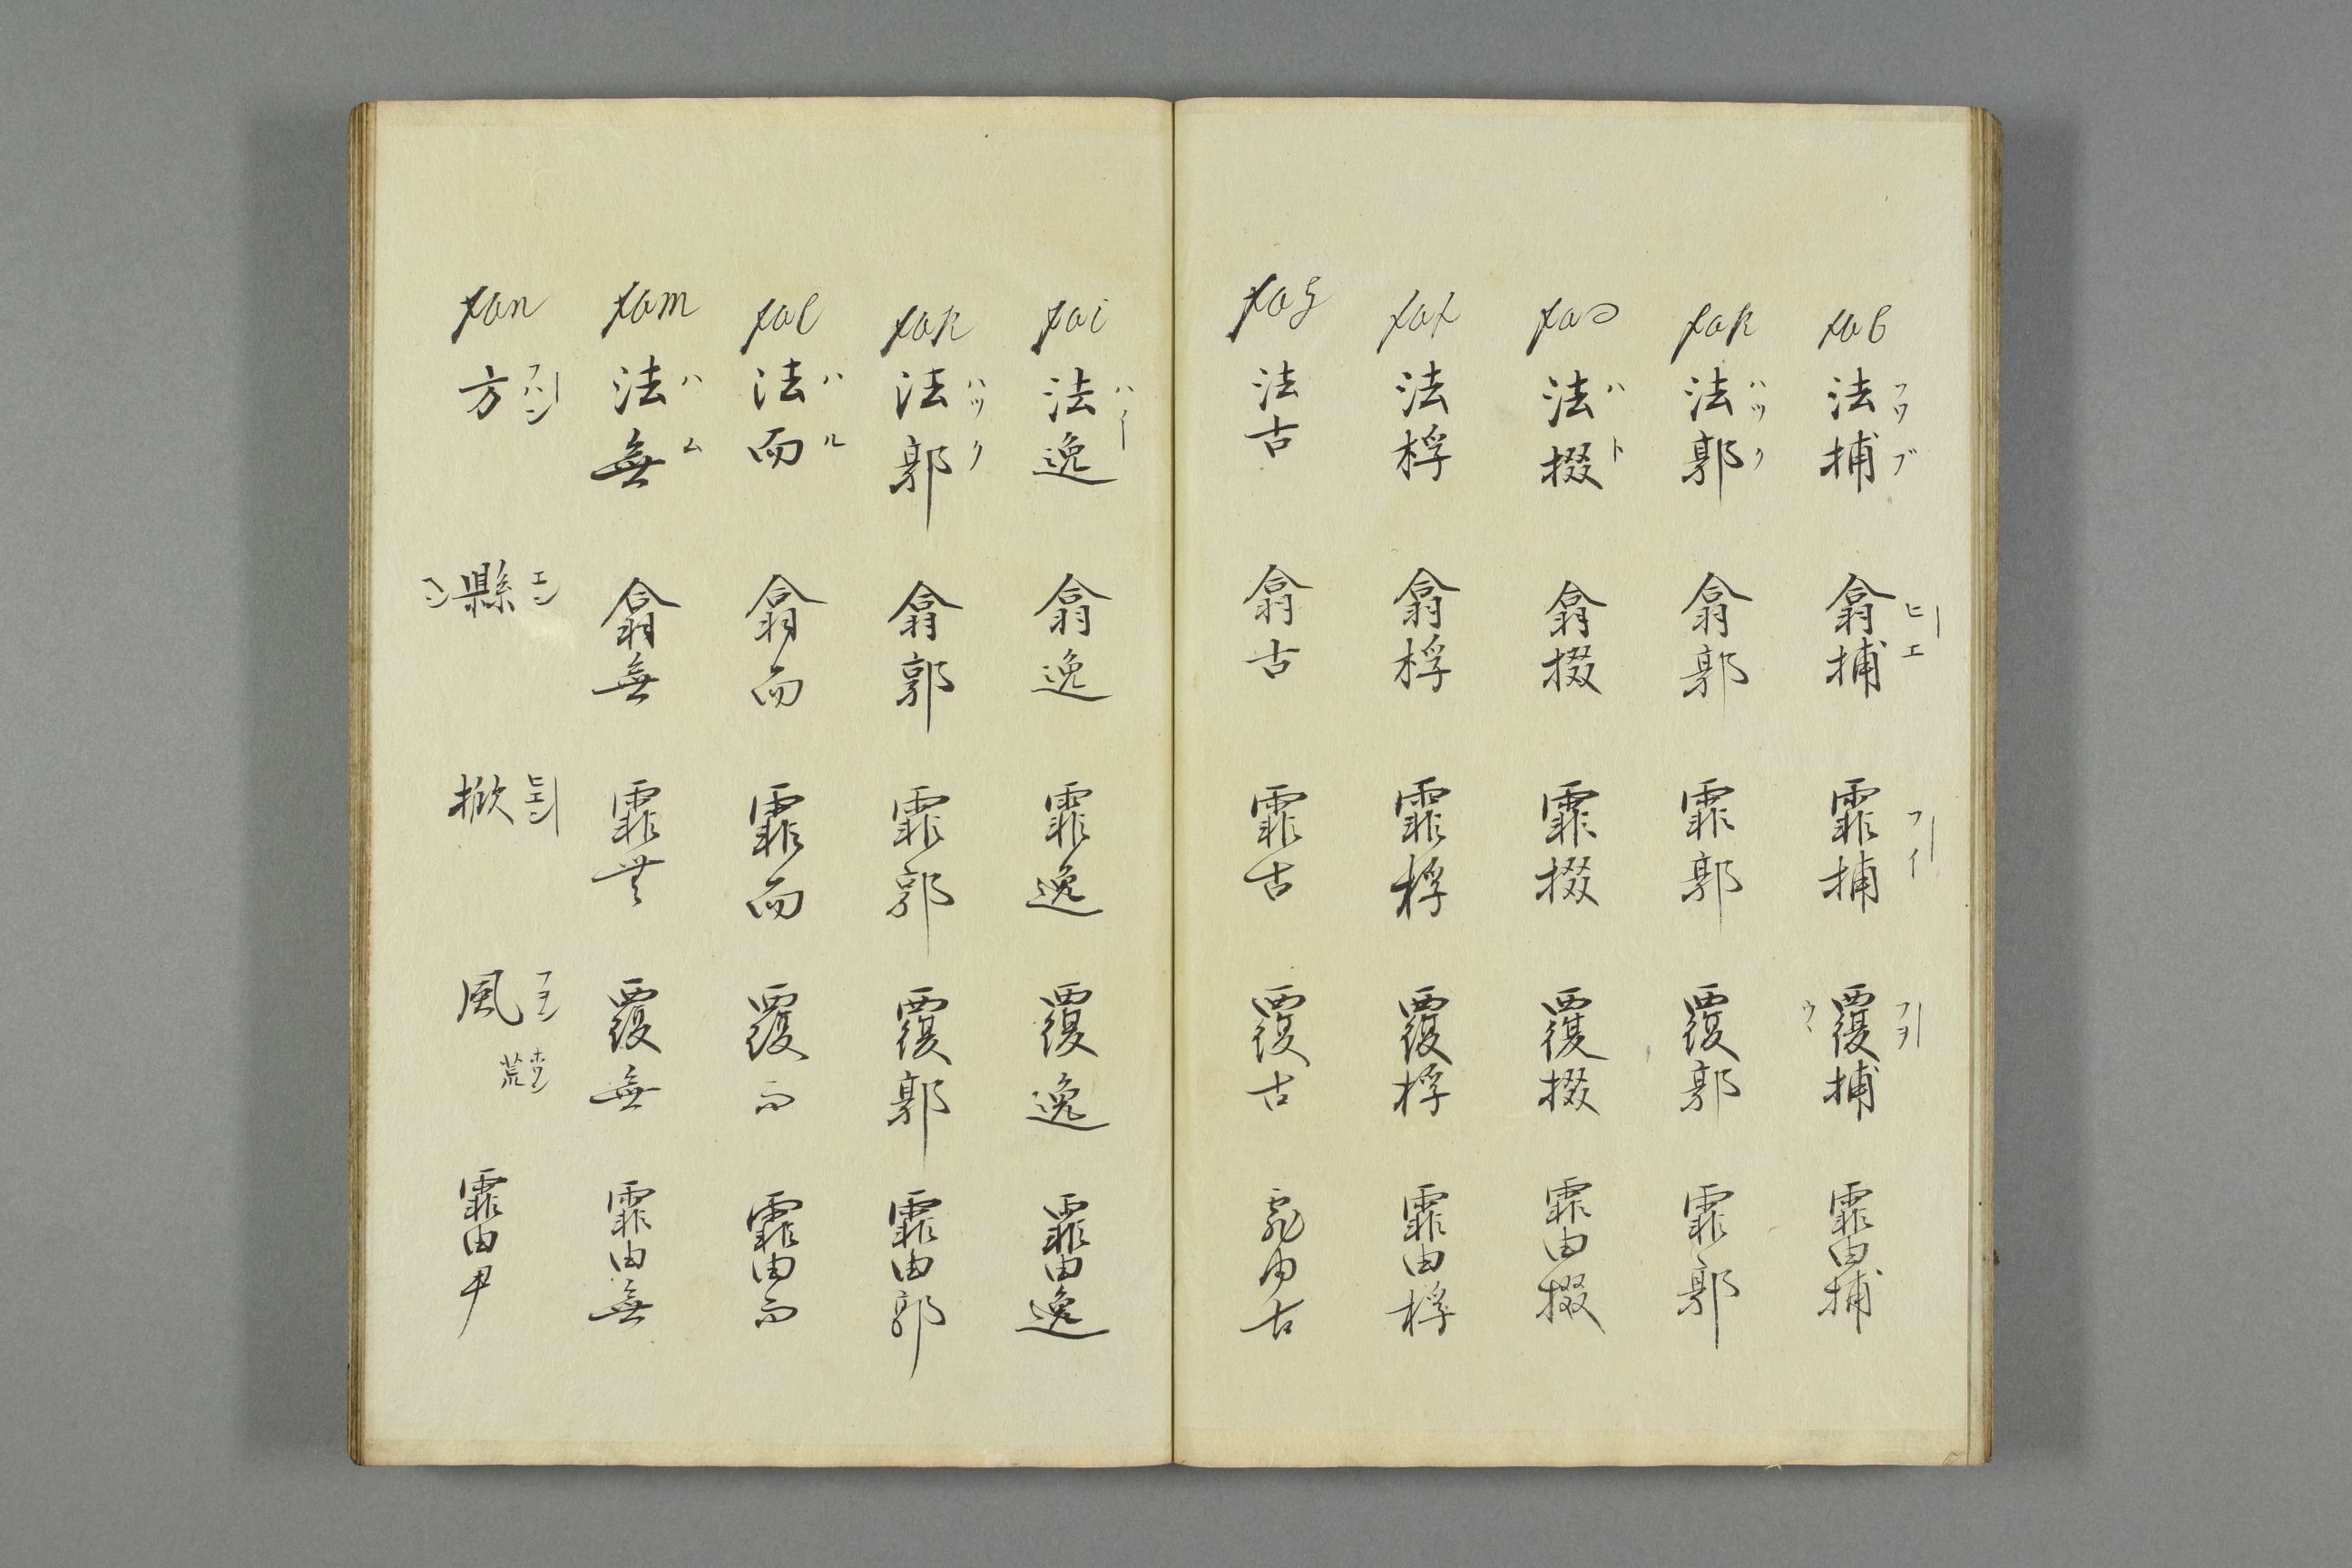 fab 法捕 翕捕 霏捕 覆捕 霏由捕
フワブ ヒエ フイ フヲ ウ
fak 法郭 翕郭 霏郭 覆郭 霏郭
ハツク
fad 法掇 翕掇 霏掇 覆掇 霏由掇
ハト
faf 法桴 翕桴 霏桴 覆桴 霏由桴
fag 法古 翕古 霏古 覆古 霏由古
fai 法逸 翕逸 霏逸 覆逸 霏由逸
ハイ
fak 法郭 翕郭 霏郭 覆郭 霏由郭
ハツク
fal 法而 翕而 霏而 覆而 霏由而
ハル
fam 法無 翕無 霏無 覆無 霏由無
ハム
fan 方 縣 掀 風 荒 霏由尹
フハン エン ヒエン フヲン ホワン